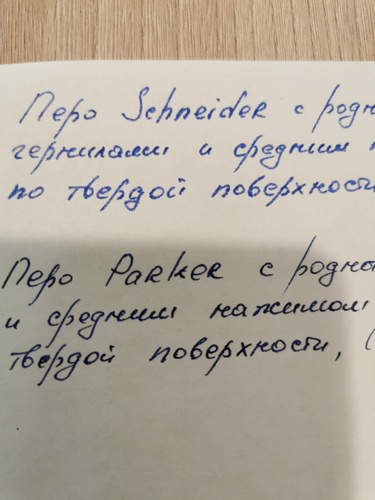 Перо Schneider с родн
чернилами и средним
по твердой поверхности
Перо Parker с родно
и средним нажимом
твердой поверхности, (